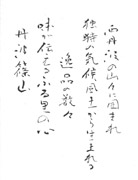 西丹波の山々に囲まれ
独特の気候風土から生まれる
逸品の数々
味が伝えるふる里の心
丹波篠山